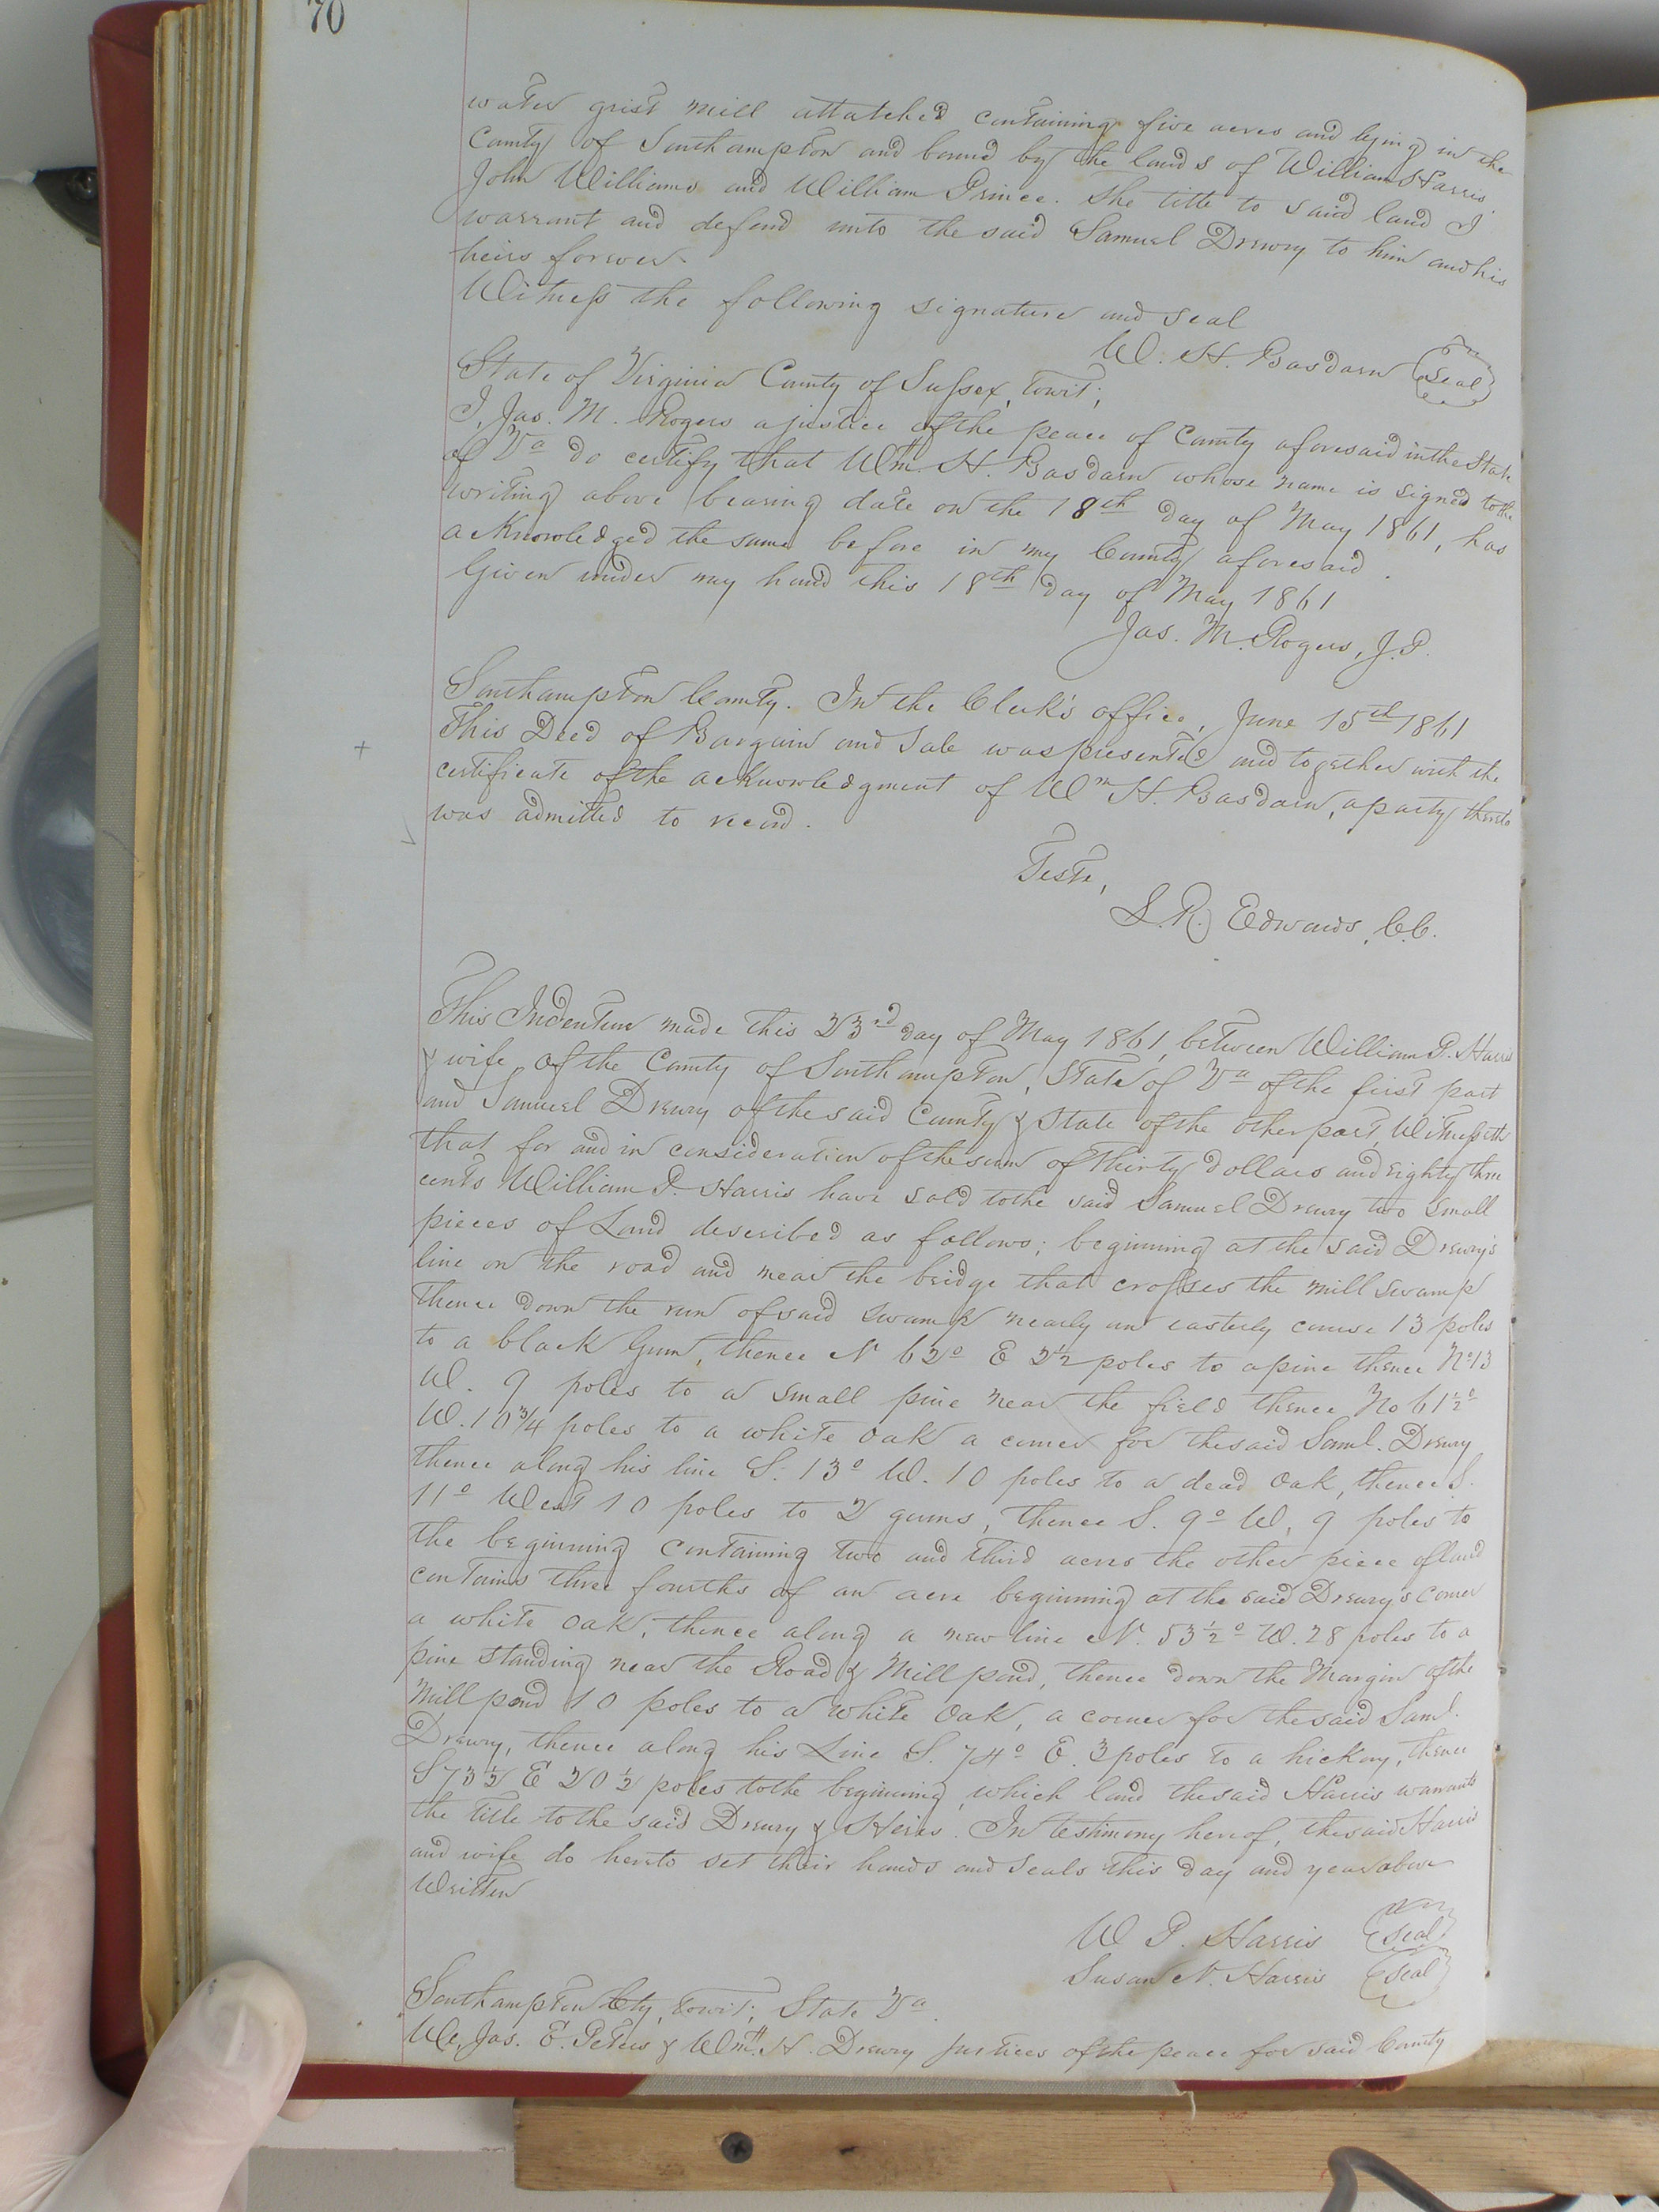 70
water grist mill attatched containing five acres and lying in the
County of Southampton and bound by the lands of William Harris.
John Williams and William Prince. The title to said land I
warrant and defend unto the said Samuel Drewry to him and his
heirs forever.
Witness the following signature and seal
W. H. Basdarn Seal
State of Virginia County of Sussex, towit;
I, Jas. M. Rogers a justice of the peace of County aforesaid in the State
of Va do certify that Wm. H. Basdarn whose name is signed to the
writing above bearing date on the 18th day of May 1861, has
acknowledged the same before in my County aforesaid.
Given under my hand this 18th day of May 1861
Jas. M. Rogers, J.P.
Southampton County. In the Clerk's office, June 15th 1861
This Deed of Bargain and Sale was presented and together with the
certificate of the acknowledgment of Wm H. Basdarn, a party thereto
was admitted to record.
Teste,
L. R. Edwards, C.C.
This Indenture made this 23rd day of May 1861, between William P. Harris
& wife of the County of Southampton, State of Va of the first part
and Samuel Drewry of the said County & State of the other part, Witnesseth
that for and in consideration of the sum of thirty dollars and eighty three
cents William P. Harris have sold to the said Samuel Drewry two small
pieces of Land described as follows; beginning at the said Drewry's
line on the road and near the bridge that crosses the mill swamp
thence down the run of said swamp nearly an easterly course 13 poles
to a black Gum, thence N 62° E 2½ poles to a pine thence No 13°
W. 9 poles to a small pine near the field thence No 61½°
W. 10¾ poles to a white oak a corner for the said Saml. Drewry
thence along his line S. 13° W. 10 poles to a dead Oak, thence S.
11° West 10 poles to 2 gums, thence S. 9° W, 9 poles to
the beginning containing two and third acres the other piece of land
contains three fourths of an acre beginning at the said Drewry's corner
a white oak, thence along a new line N. 53½° W. 28 poles to a
pine standing near the Road & Mill pond, thence down the Margin of the
Mill pond 10 poles to a white Oak, a corner for the said Saml.
Drewry, thence along his Line S. 74° E. 3 poles to a hickory, thence
S 73½ E 20½ poles to the beginning, which land the said Harris warrants
the Title to the said Drewry & Heirs. In testimony hereof, the said Harris
and wife do hereto set their hands and seals this day and year above
Written
W. P. Harris Seal
Susan N. Harris Seal
Southampton Cty, towit; State Va.
We, Jas. E. Peters & Wm. H. Drewry justices of the peace for said County